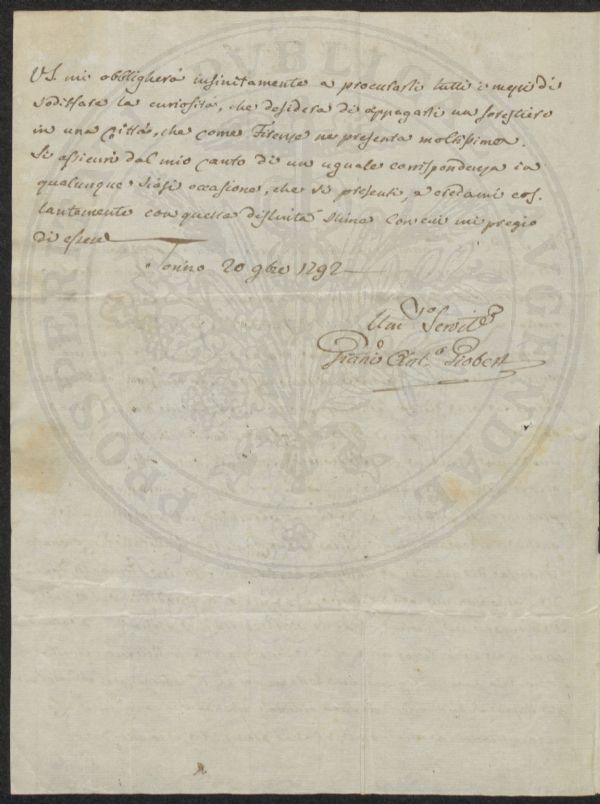 VS. mi obbligherà infinitamente a procurarli tutti i mezzi di
sodisfare la curiosità, che desidera di appagarsi un forestiero
in una Città, che come Firenze ne presenta moltissime.
Si assicuri dal mio canto di un uguale corrispondenza in
qualunque siasi occasione, che si presenti, e credami cos-
tantemente con quella distinta stima con cui mi pregio
di essere
Torino 20 9bre 1792
Um.º Servit.e
Gianº Ant.º Giobert
PROSPERITATI PVBLICAE AVGENDAE